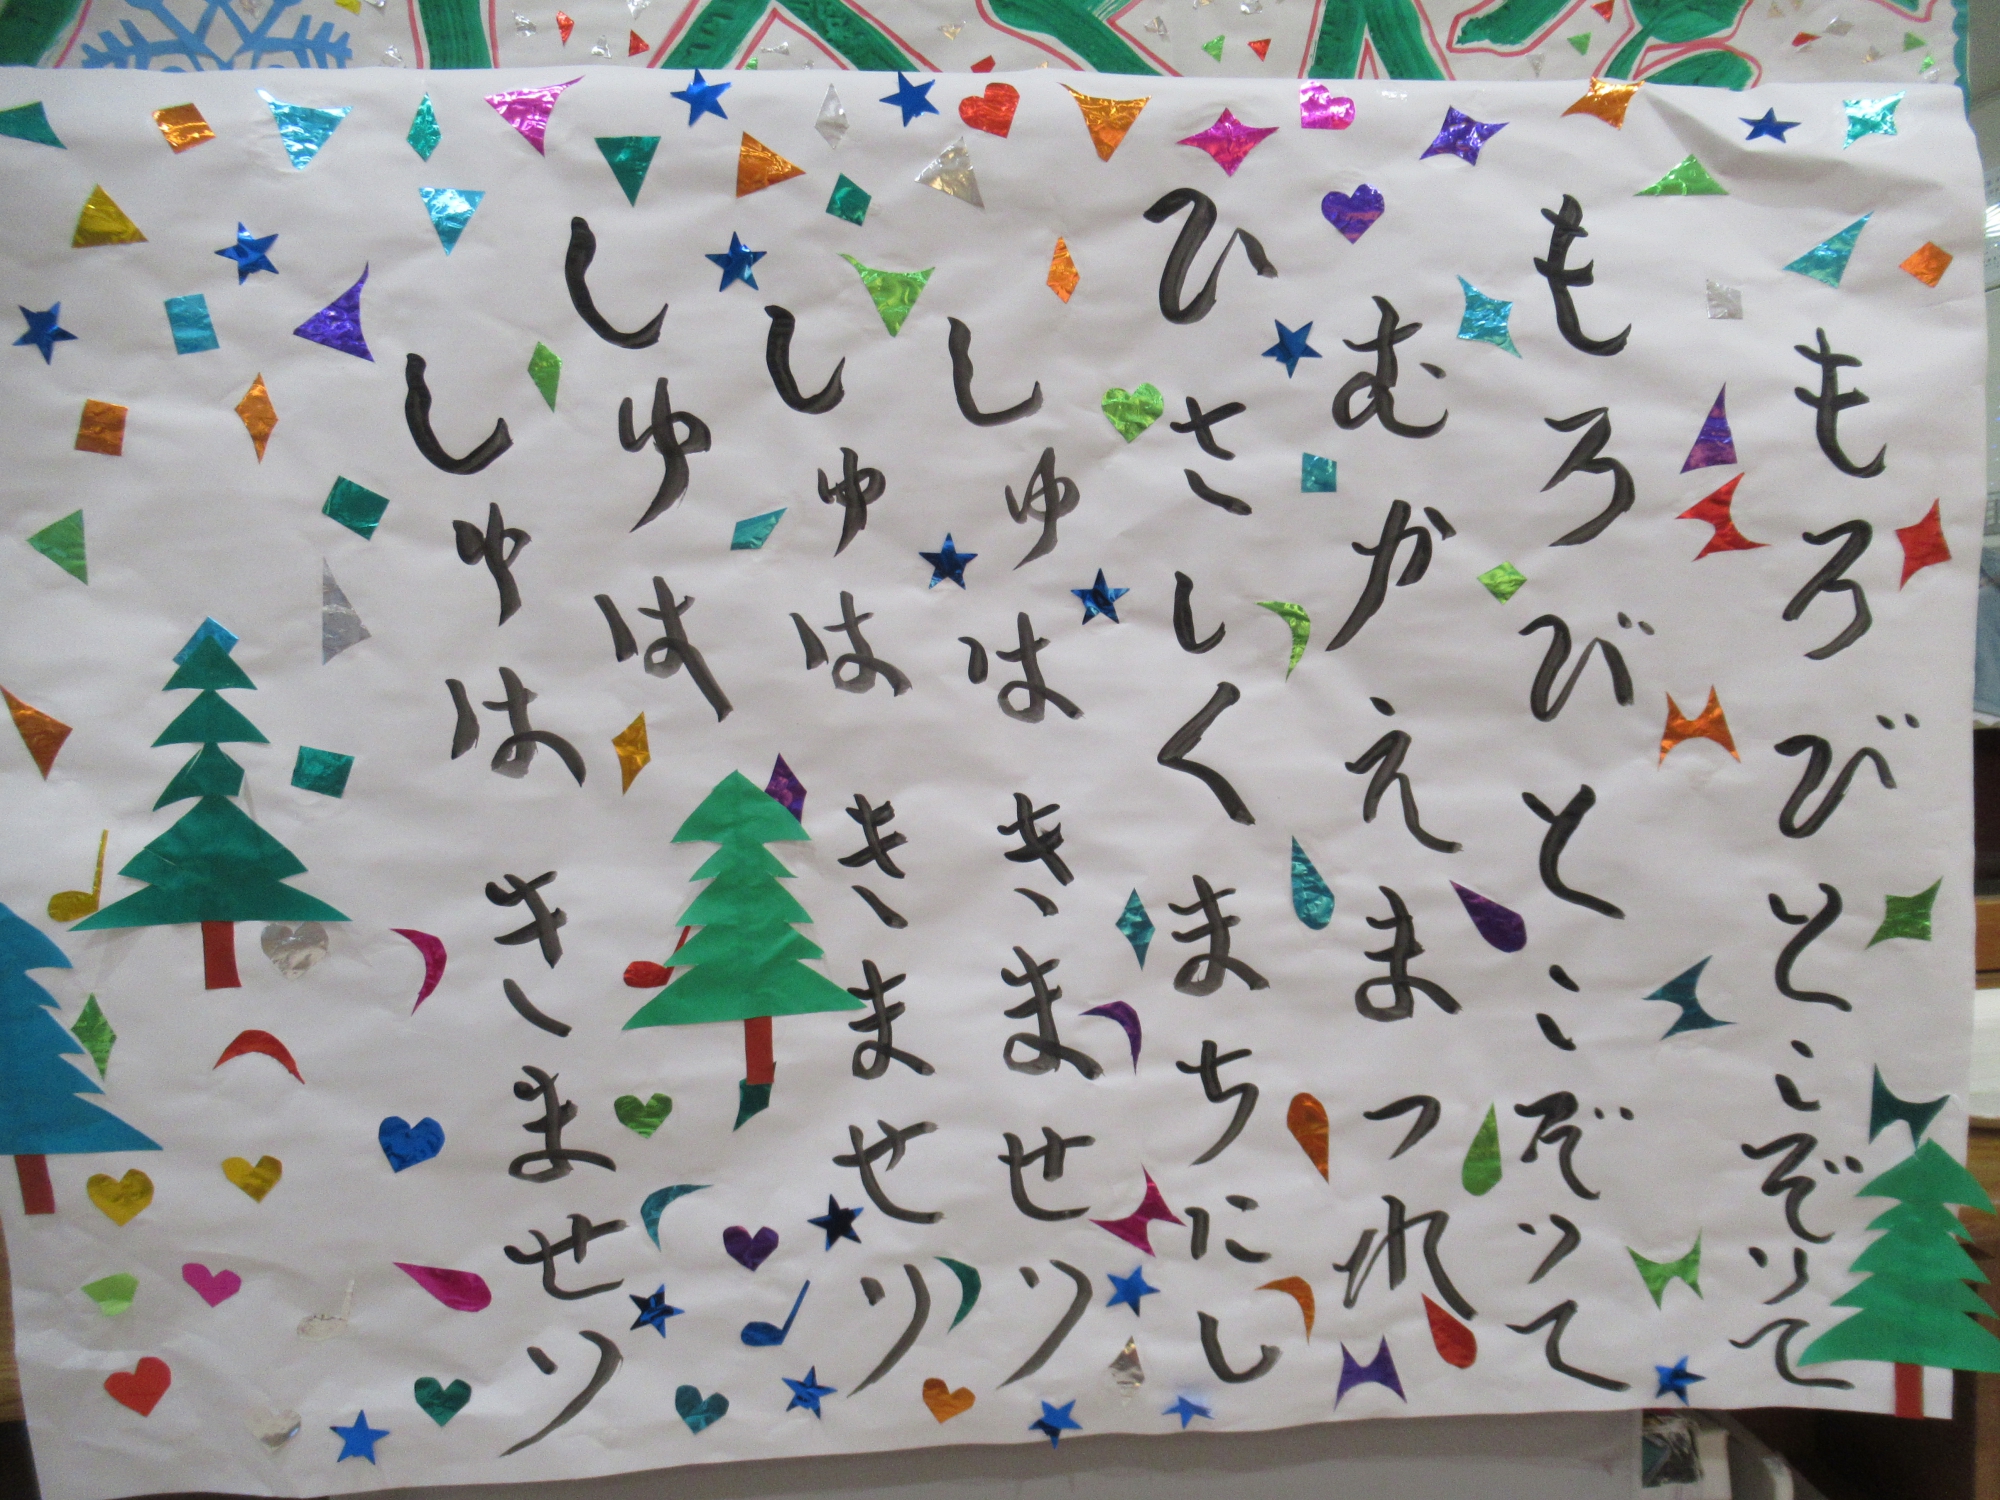 もろびとこぞりて
もろびとこぞりて
むかえまつれ
ひさしくまちにし
しゅはきませり
しゅはきませり
しゅは
しゅはきませり